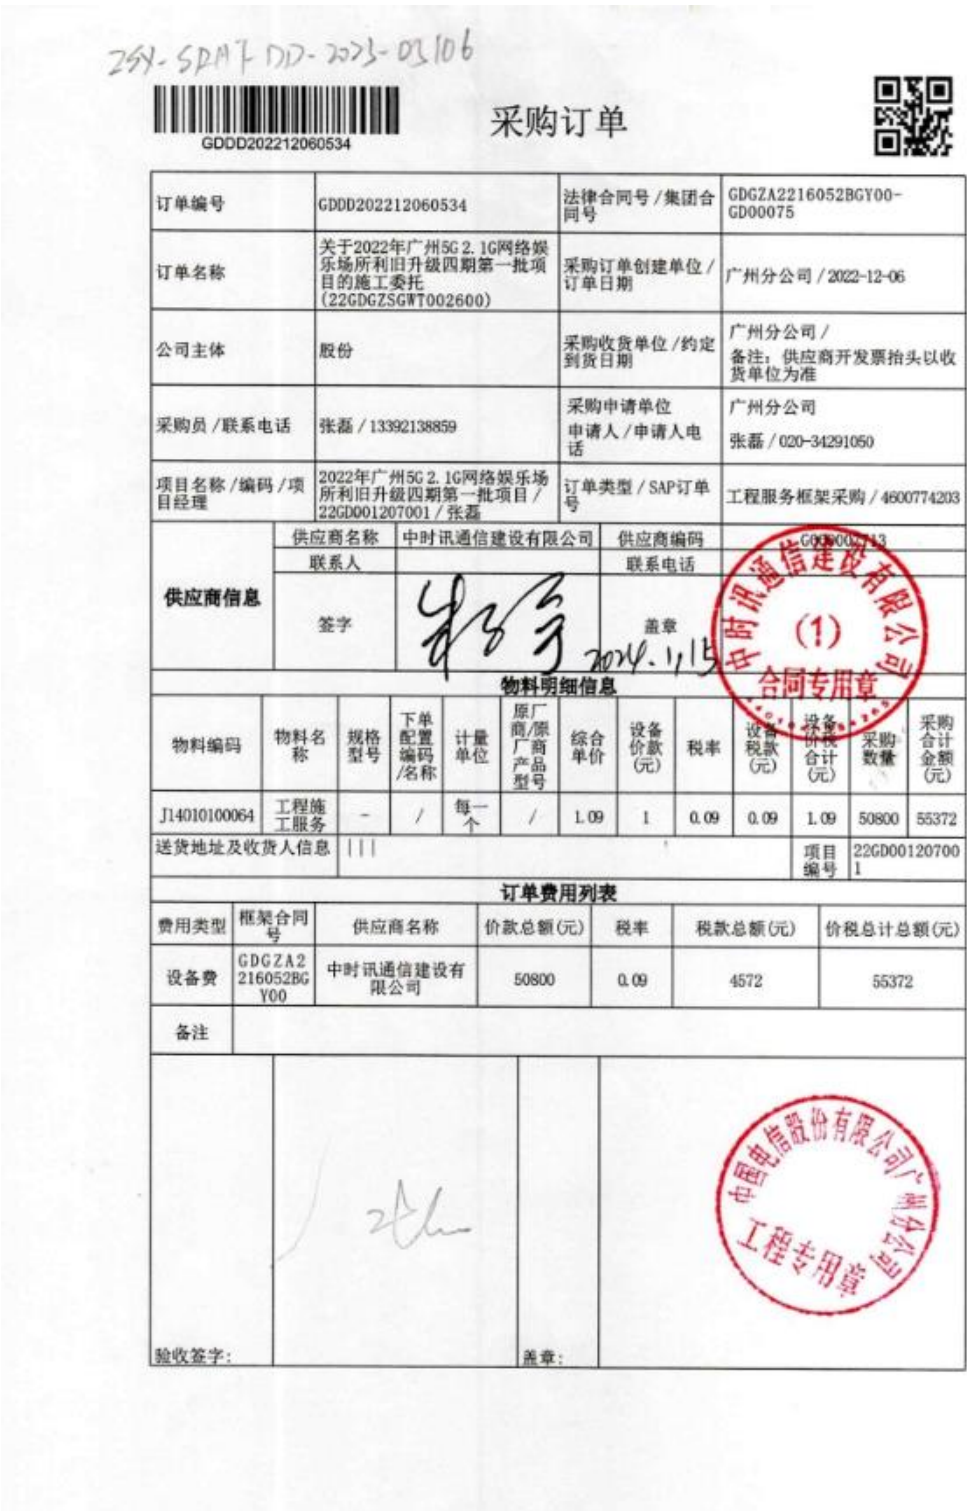 采购订单
GDDD202212060534
订单编号
GDDD202212060534
法律合同号/集团合
同号
GDGZA2216052BGY00-
GD00075
订单名称
关于2022年广州5G 2.1G网络娱
乐场所利旧升级四期第一批项
目的施工委托
(22GDGZSGWT002600)
采购订单创建单位/
订单日期
广州分公司/2022-12-06
公司主体
股份
采购收货单位/约定
到货日期
广州分公司/
备注：供应商开发票抬头以收
货单位为准
采购员/联系电话
张磊/13392138859
采购申请单位
申请人/申请人电
话
广州分公司
张磊/020-34291050
项目名称/编码/项
目经理
2022年广州5G 2.1G网络娱乐场
所利旧升级四期第一批项目/
22GD001207001/张磊
订单类型/SAP订单
号
工程服务框架采购/4600774203
供应商信息
供应商名称
中时讯通信建设有限公司
供应商编码
联系人
联系电话
签字
2024.1.15
盖章
中时讯通信建设有限公司
(1)
合同专用章
物料明细信息
物料编码
物料名
称
规格
型号
下单
配置
编码
/名称
计量
单位
原厂
商/原
厂商
产品
型号
综合
单价
设备
价款
(元)
税率
设备
税款
(元)
设备
价税
合计
(元)
采购
数量
采购
合计
金额
(元)
J14010100064
工程施
工服务
-
/
每一
个
/
1.09
1
0.09
0.09
1.09
50800
55372
送货地址及收货人信息
|||
项目
编号
22GD00120700
1
订单费用列表
费用类型
框架合同
号
供应商名称
价款总额(元)
税率
税款总额(元)
价税总计总额(元)
设备费
GDGZA2
216052BG
Y00
中时讯通信建设有
限公司
50800
0.09
4572
55372
备注
中国电信股份有限公司广州分公司
工程专用章
验收签字:
盖章: